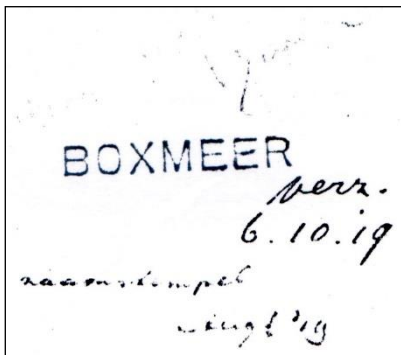 BOXMEER
verz.
6.10.19
naamstempel
'19